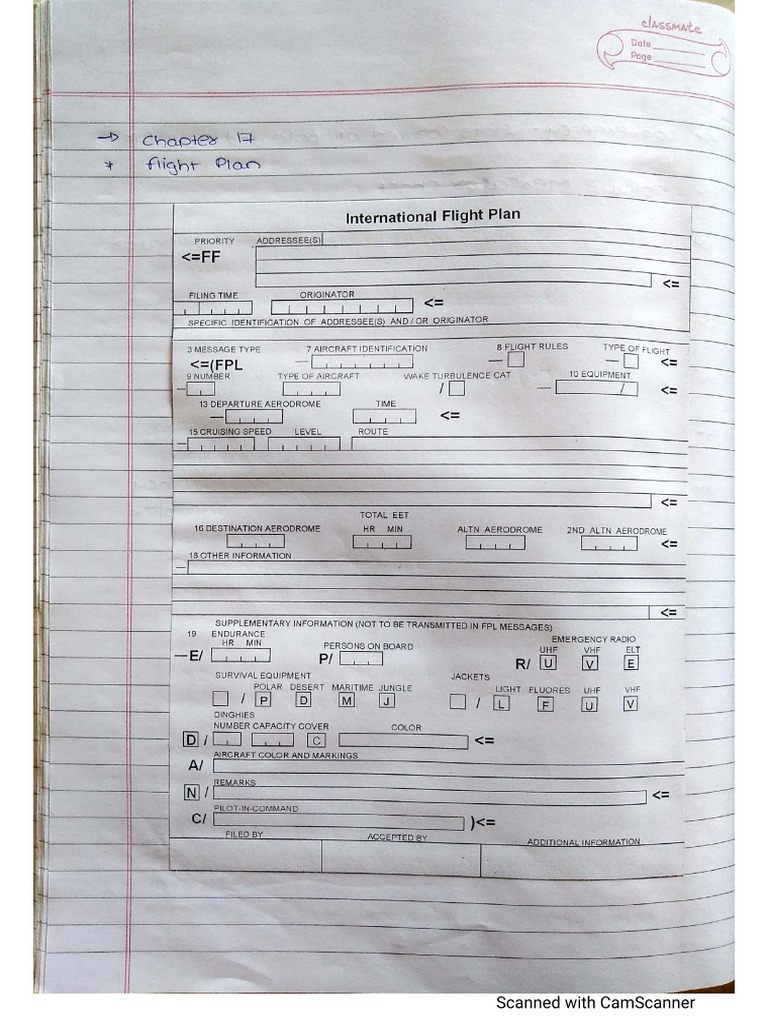 classmate
Date
Page
→ Chapter 17
* Flight Plan
International Flight Plan
PRIORITY ADDRESSEE(S)
<=FF
<=
FILING TIME ORIGINATOR
<=
SPECIFIC IDENTIFICATION OF ADDRESSEE(S) AND / OR ORIGINATOR
3 MESSAGE TYPE 7 AIRCRAFT IDENTIFICATION 8 FLIGHT RULES TYPE OF FLIGHT
<=(FPL — — — <=
9 NUMBER TYPE OF AIRCRAFT WAKE TURBULENCE CAT. 10 EQUIPMENT
— / — / <=
13 DEPARTURE AERODROME TIME
— <=
15 CRUISING SPEED LEVEL ROUTE
—
<=
TOTAL EET
16 DESTINATION AERODROME HR MIN ALTN AERODROME 2ND ALTN AERODROME
<=
18 OTHER INFORMATION
—
<=
SUPPLEMENTARY INFORMATION (NOT TO BE TRANSMITTED IN FPL MESSAGES)
19 ENDURANCE EMERGENCY RADIO
HR MIN PERSONS ON BOARD UHF VHF ELT
—E/ P/ R/ U V E
SURVIVAL EQUIPMENT JACKETS
POLAR DESERT MARITIME JUNGLE LIGHT FLUORES UHF VHF
/ P D M J / L F U V
DINGHIES
NUMBER CAPACITY COVER COLOR
D / C <=
AIRCRAFT COLOR AND MARKINGS
A/
REMARKS
N / <=
PILOT-IN-COMMAND
C/ )<=
FILED BY ACCEPTED BY ADDITIONAL INFORMATION
Scanned with CamScanner